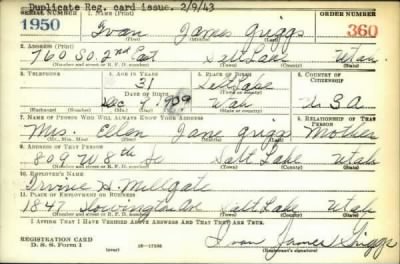 Duplicate Reg. card issue. 2/9/43
SERIAL NUMBER 1. NAME (Print) ORDER NUMBER
1950 Ivan James Griggs 360
(First) (Middle) (Last)
2. ADDRESS (Print)
760 So. 2nd East Salt Lake Utah
(Number and street or R. F. D. number) (Town) (County) (State)
3. TELEPHONE 4. AGE IN YEARS 5. PLACE OF BIRTH 6. COUNTRY OF CITIZENSHIP
31 Salt Lake
DATE OF BIRTH (Town or county)
Dec 9 1909 Utah U S A
(Exchange) (Number) (Mo.) (Day) (Yr.) (State or country)
7. NAME OF PERSON WHO WILL ALWAYS KNOW YOUR ADDRESS 8. RELATIONSHIP OF THAT PERSON
Mrs. Ellen Jane Griggs Mother
(Mr., Mrs., Miss) (First) (Middle) (Last)
9. ADDRESS OF THAT PERSON
809 W 8th So Salt Lake Utah
(Number and street or R. F. D. number) (Town) (County) (State)
10. EMPLOYER'S NAME
H. Millgate
11. PLACE OF EMPLOYMENT OR BUSINESS
1847 Ave Salt Lake Utah
(Number and street or R. F. D. number) (Town) (County) (State)
I AFFIRM THAT I HAVE VERIFIED ABOVE ANSWERS AND THAT THEY ARE TRUE.
REGISTRATION CARD
D. S. S. Form 1 16-17105 Ivan James Griggs
(Registrant's signature)